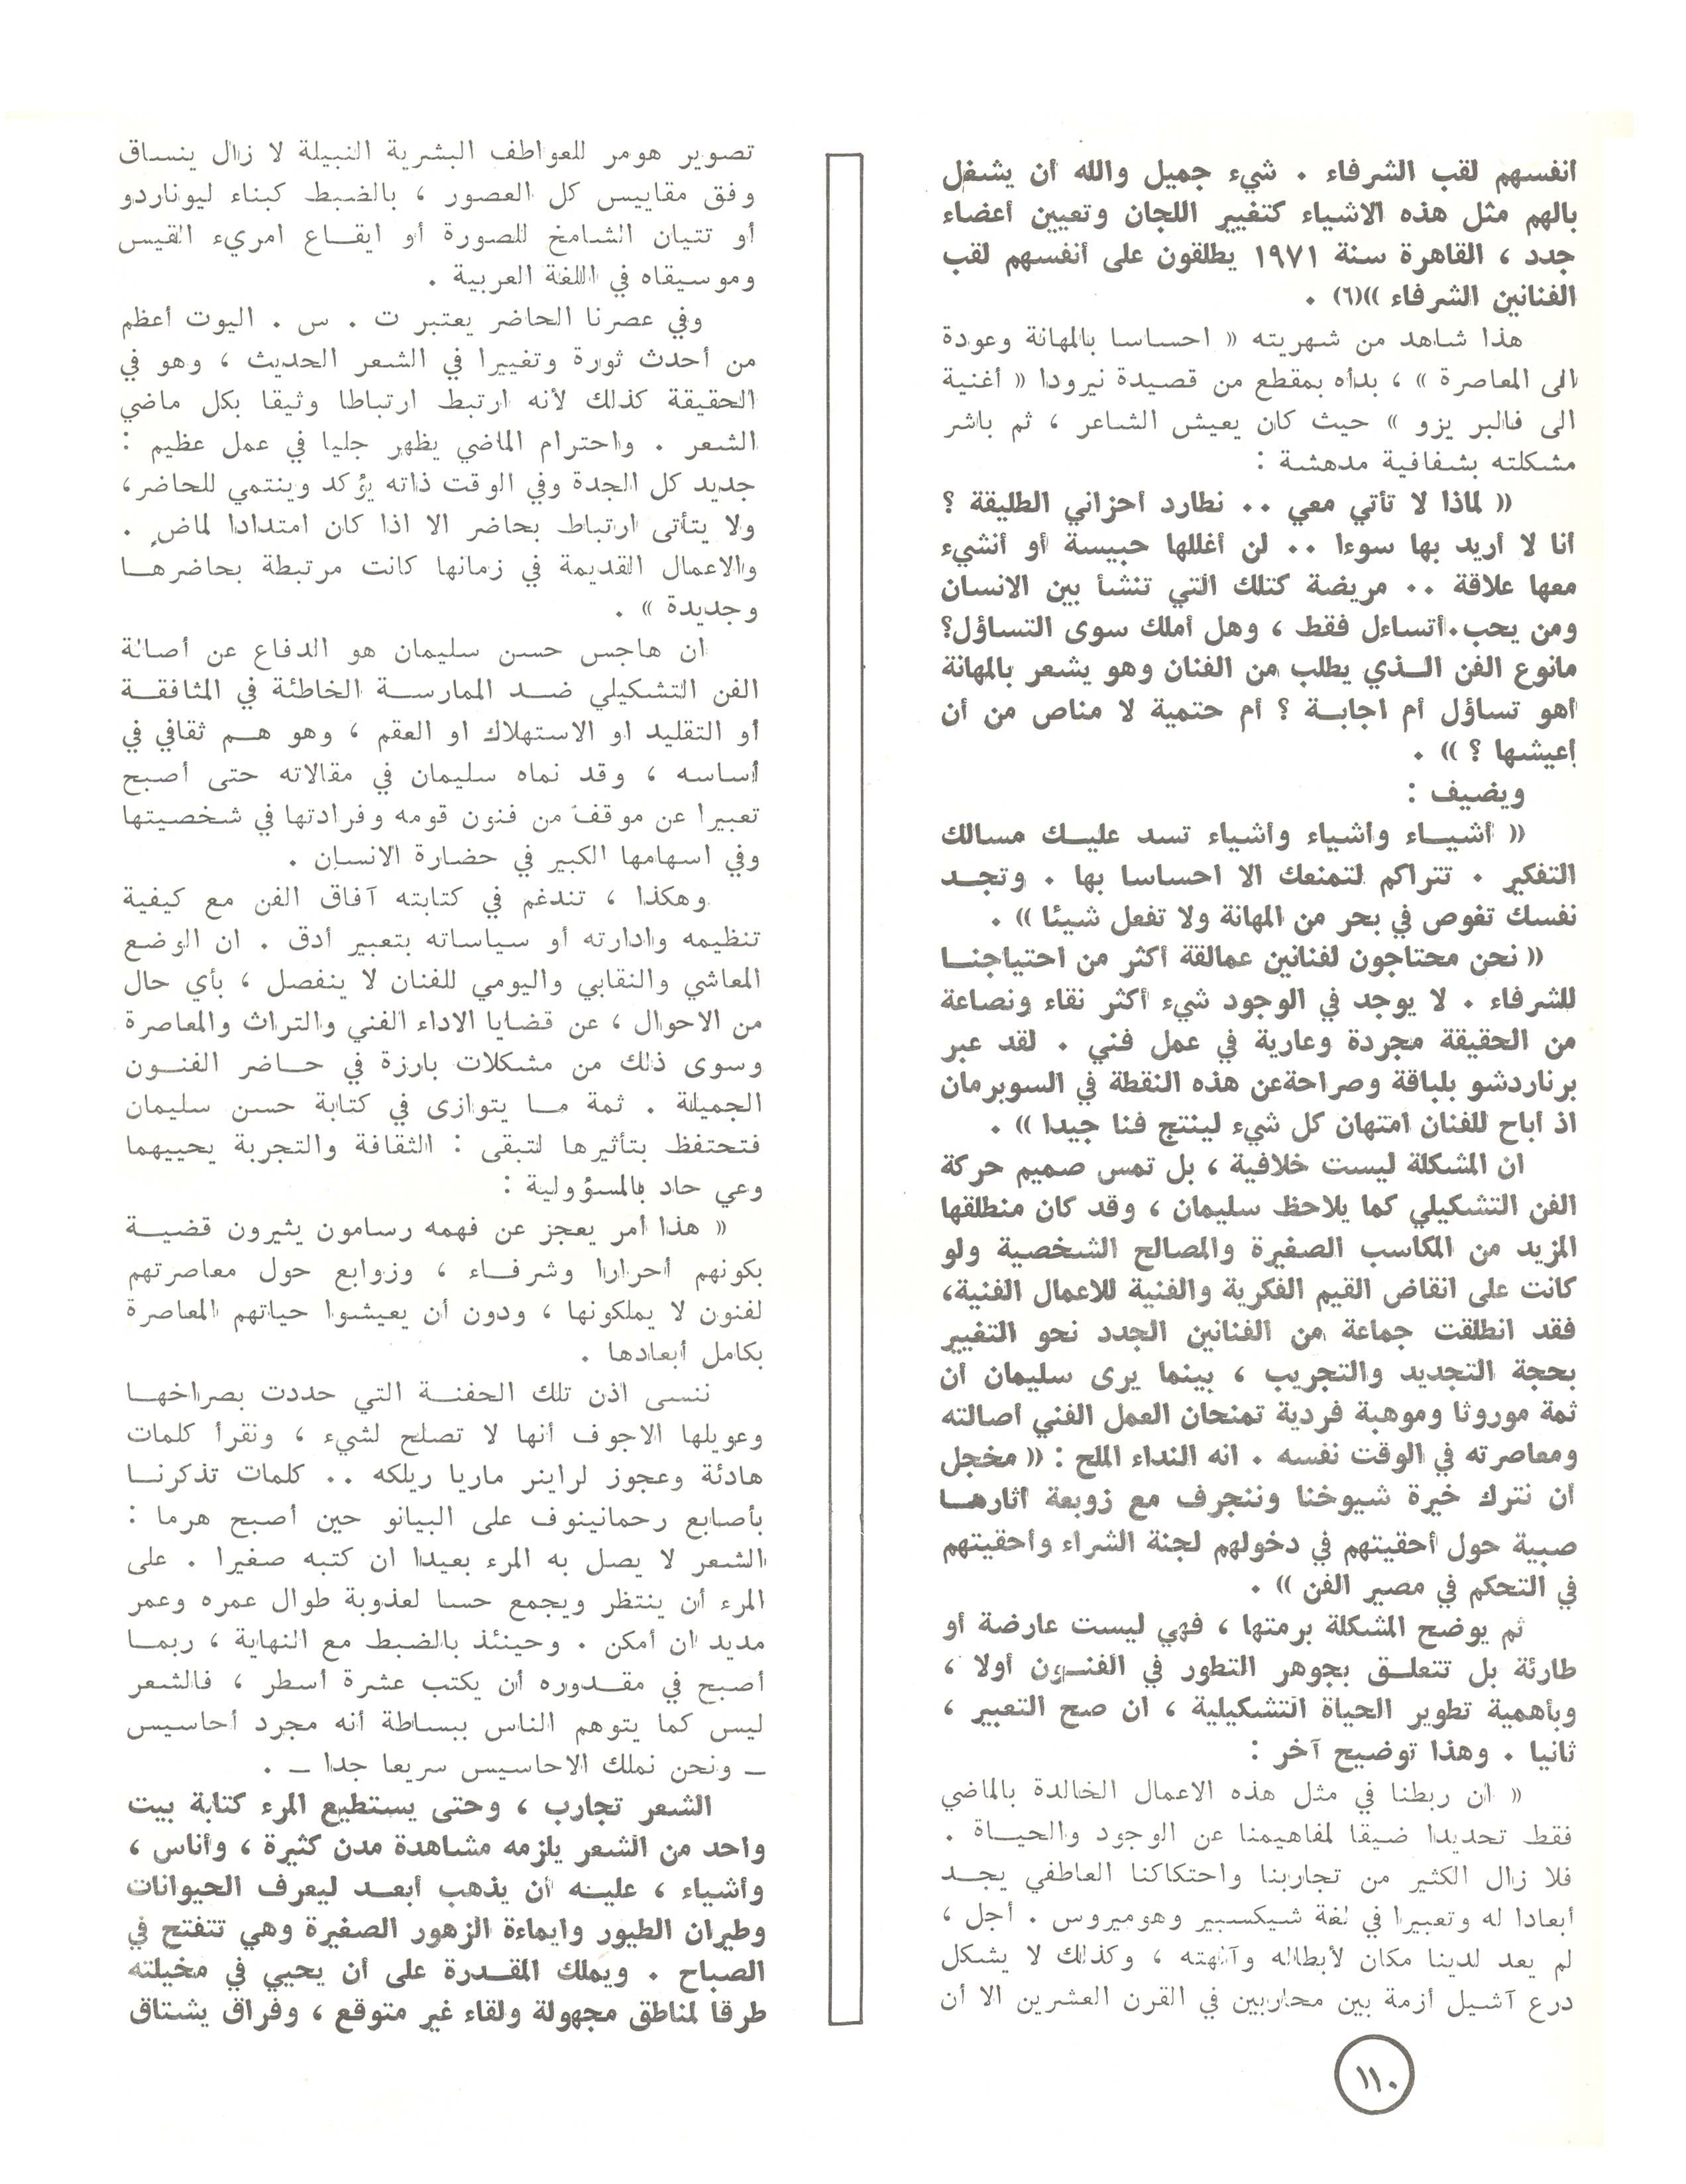 أنفسهم لقب الشرفاء . شيء جميل والله أن يشغل
بالهم مثل هذه الاشياء كتغيير اللجان وتعيين أعضاء
جدد ، القاهرة سنة ١٩٧١ يطلقون على أنفسهم لقب
الفنانين الشرفاء »(٦) .
هذا شاهد من شهريته « احساسا بالمهانة وعودة
الى المعاصرة » ، بدأه بمقطع من قصيدة نيرودا « أغنية
الى فالبر يزو » حيث كان يعيش الشاعر ، ثم باشر
مشكلته بشفافية مدهشة :
« لماذا لا تأتي معي .. نطارد أحزاني الطليقة ؟
أنا لا أريد بها سوءا .. لن أغللها حبيسة أو أنشيء
معها علاقة .. مريضة كتلك التي تنشأ بين الانسان
ومن يحب.أتساءل فقط ، وهل أملك سوى التساؤل؟
مانوع الفن الـذي يطلب من الفنان وهو يشعر بالمهانة
أهو تساؤل أم اجابـة ؟ أم حتمية لا مناص من أن
أعيشها ؟ » .
ويضيف :
« أشيـاء وأشياء وأشياء تسد عليـك مسالك
التفكير . تتراكم لتمنعك الا احساسا بها . وتجـد
نفسك تغوص في بحر من المهانة ولا تفعل شيئا » .
« نحن محتاجون لفنانين عمالقة أكثر من احتياجنـا
للشرفاء . لا يوجد في الوجود شيء أكثر نقاء ونصاعة
من الحقيقة مجردة وعارية في عمل فني . لقد عبر
برناردشو بلباقة وصراحةعن هذه النقطة في السوبرمان
اذ أباح للفنان امتهان كل شيء لينتج فنا جيدا » .
ان المشكلة ليست خلافية ، بل تمس صميم حركة
الفن التشكيلي كما يلاحظ سليمان ، وقد كان منطلقها
المزيد من المكاسب الصغيرة والمصالح الشخصية ولو
كانت على انقاض القيم الفكرية والفنية للاعمال الفنية،
فقد انطلقت جماعة من الفنانين الجدد نحو التغيير
بحجة التجديد والتجريب ، بينما يرى سليمان أن
ثمة موروثا وموهبة فردية تمنحان العمل الفني أصالته
ومعاصرته في الوقت نفسه . انه النداء الملح : « مخجل
أن نترك خيرة شيوخنا وننجرف مع زوبعة أثارهـا
صبية حول أحقيتهم في دخولهم لجنة الشراء وأحقيتهم
في التحكم في مصير الفن » .
ثم يوضح المشكلة برمتها ، فهي ليست عارضة أو
طارئة بل تتعلـق بجوهر التطور في الفنـون أولا ،
وبأهمية تطوير الحياة التشكيلية ، ان صح التعبير ،
ثانيا . وهذا توضيح آخر :
« ان ربطنا في مثل هذه الاعمال الخالدة بالماضي
فقط تحديدا ضيقا لمفاهيمنا عن الوجود والحيـاة .
فلا زال الكثير من تجاربنا واحتكاكنا العاطفي يجـد
أبعادا له وتعبيرا في لغة شيكسبير وهوميروس . أجل ،
لم يعد لدينا مكان لأبطاله وآلهته ، وكذلك لا يشكل
درع آشيل أزمة بين محاربين في القرن العشرين الا أن
تصوير هومر للعواطف البشرية النبيلة لا زال ينساق
وفق مقاييس كل العصور ، بالضبط كبناء ليوناردو
أو تتيان الشامخ للصورة أو ايقـاع امريء القيس
وموسيقاه في اللغة العربية .
وفي عصرنا الحاضر يعتبر ت . س . اليوت أعظم
من أحدث ثورة وتغييرا في الشعر الحديث ، وهو في
الحقيقة كذلك لأنه ارتبط ارتباطا وثيقا بكل ماضي
الشعر . واحترام الماضي يظهر جليا في عمل عظيم :
جديد كل الجدة وفي الوقت ذاته يؤكد وينتمي للحاضر،
ولا يتأتى ارتباط بحاضر الا اذا كان امتدادا لماضٍ .
والاعمال القديمة في زمانها كانت مرتبطة بحاضرهـا
وجديدة » .
ان هاجس حسن سليمان هو الدفاع عن أصالة
الفن التشكيلي ضـد الممارسـة الخاطئة في المثاقفـة
أو التقليد او الاستهلاك او العقم ، وهو هـم ثقافي في
أساسه ، وقد نماه سليمان في مقالاته حتى أصبح
تعبيرا عن موقف من فنون قومه وفرادتها في شخصيتها
وفي اسهامها الكبير في حضارة الانسان .
وهكذا ، تندغم في كتابته آفاق الفن مع كيفية
تنظيمه وادارته أو سياساته بتعبير أدق . ان الوضع
المعاشي والنقابي واليومي للفنان لا ينفصل ، بأي حال
من الاحوال ، عن قضايا الاداء الفني والتراث والمعاصرة
وسوى ذلك من مشكلات بارزة في حـاضر الفنـون
الجميلة . ثمة مـا يتوازى في كتابة حسن سليمان
فتحتفظ بتأثيرها لتبقى : الثقافة والتجربة يحييهما
وعي حاد بالمسؤولية :
« هذا أمر يعجز عن فهمه رسامون يثيرون قضيـة
بكونهم أحرارا وشرفـاء ، وزوابع حول معاصرتهم
لفنون لا يملكونها ، ودون أن يعيشوا حياتهم المعاصرة
بكامل أبعادها .
ننسى اذن تلك الحفنـة التي حددت بصراخهـا
وعويلها الاجوف أنها لا تصلح لشيء ، ونقرأ كلمات
هادئة وعجوز لراينر ماريا ريلكه .. كلمات تذكرنـا
بأصابع رحمانينوف على البيانو حين أصبح هرما :
الشعر لا يصل به المرء بعيدا ان كتبه صغيرا . على
المرء أن ينتظر ويجمع حسا لعذوبة طوال عمره وعمر
مديد ان أمكن . وحينئذ بالضبط مع النهاية ، ربمـا
أصبح في مقـدوره أن يكتب عشرة أسطر ، فالشعر
ليس كما يتوهم الناس ببساطة أنه مجرد أحاسيس
ــ ونحن نملك الاحاسيس سريعا جدا ــ .
الشعر تجارب ، وحتى يستطيع المرء كتابة بيت
واحد من الشعر يلزمه مشاهدة مدن كثيرة ، وأناس ،
وأشياء ، عليـه أن يذهب أبعـد ليعرف الحيوانات
وطيران الطيور وايماءة الزهور الصغيرة وهي تتفتح في
الصباح . ويملك المقـدرة على أن يحيي في مخيلته
طرقا لمناطق مجهولة ولقاء غير متوقع ، وفراق يشتاق
١١٠